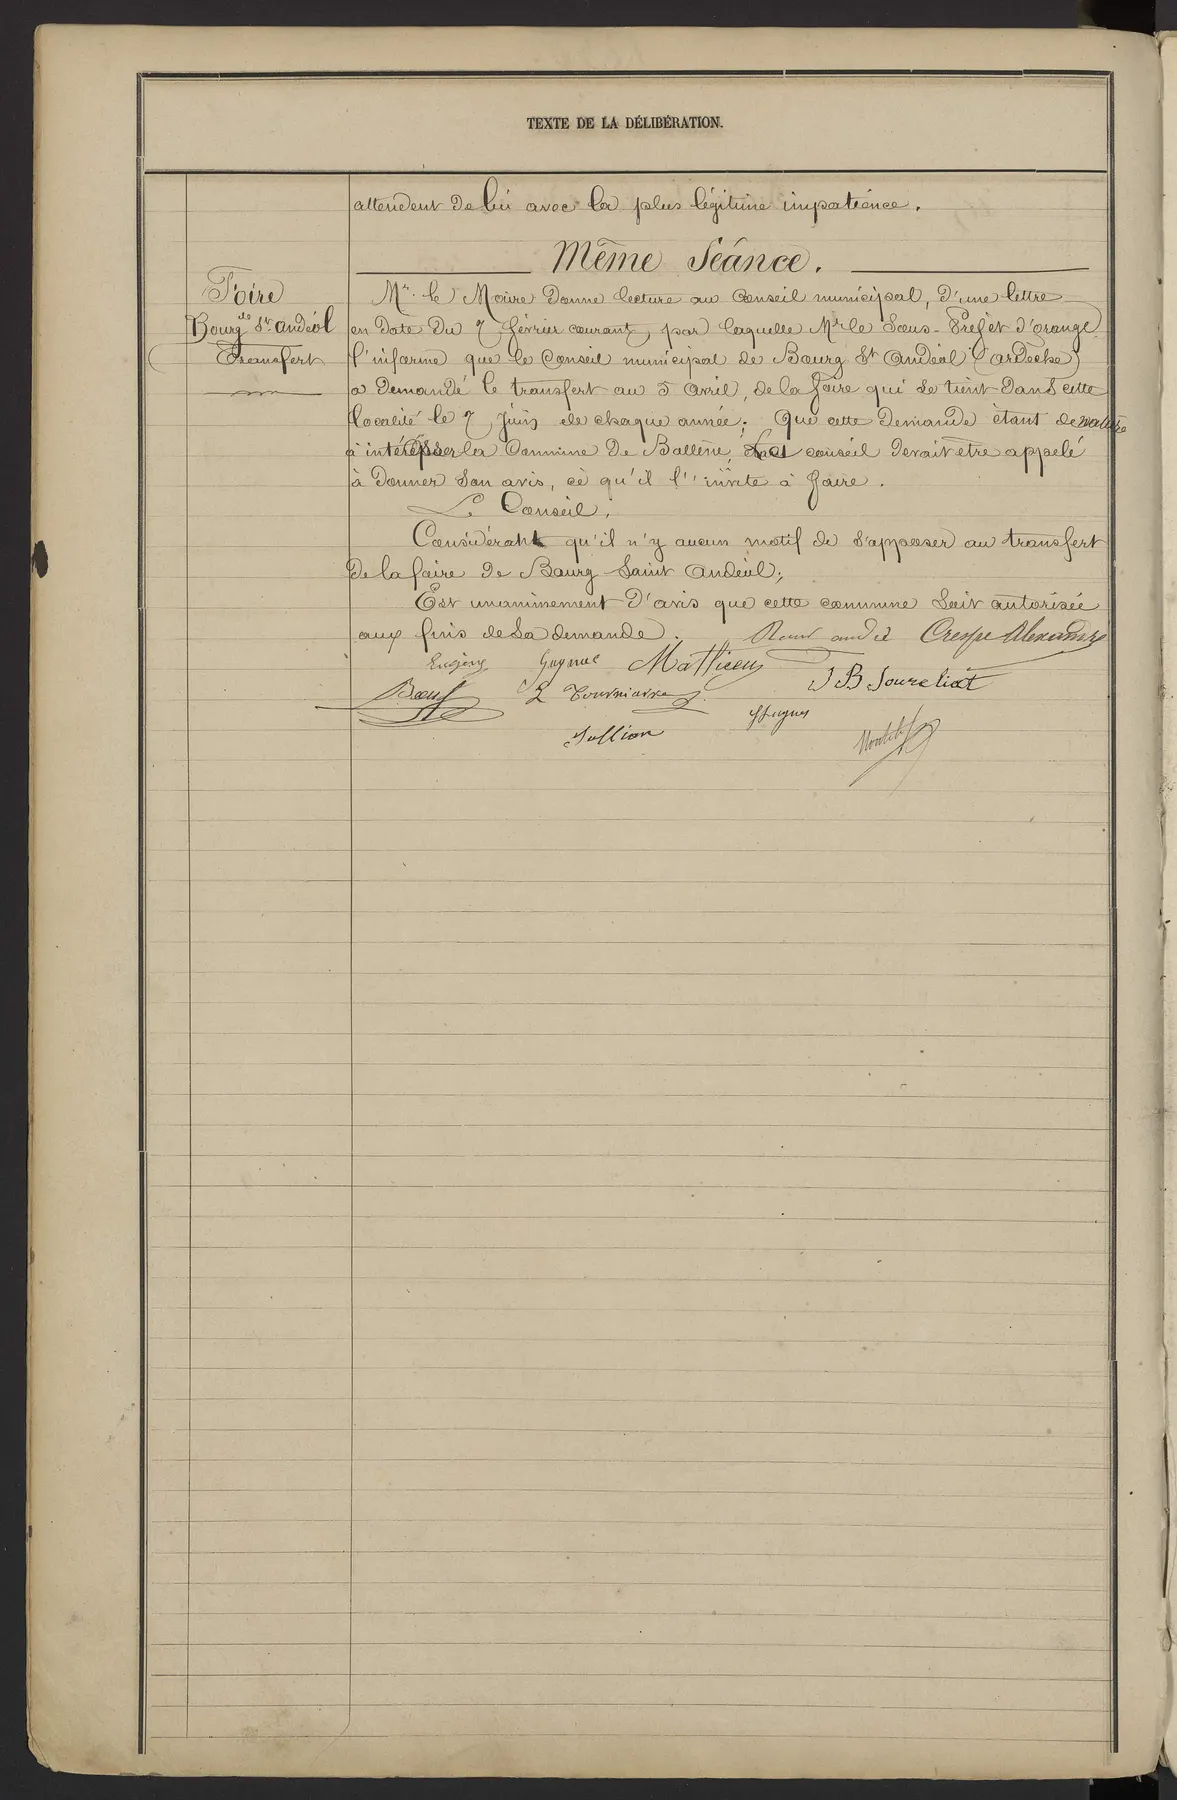 TEXTE DE LA DÉLIBÉRATION.
attendent de lui avec la plus légitime impatience.
Même Séance.
Foire
Bourg de St. Andéol
Transfert
Mr. le Maire donne lecture au Conseil municipal, d'une lettre
en date du 7 février courant, par laquelle Mr le Sous-Préfet d'Orange
l'informe que le Conseil municipal de Bourg St Andéol (Ardèche)
a demandé le transfert au 5 Avril, de la foire qui se tient dans cette
localité le 7 Juin de chaque année; Que cette demande étant de nature
à intéresser la Commune de Bollène, conseil devait être appelé
à donner son avis, ce qu'il l'invite à faire.
Le Conseil,
Considérant qu'il n'y aucun motif de s'opposer au transfert
de la foire de Bourg Saint Andéol;
Est unanimement d'avis que cette commune soit autorisée
aux fins de sa demande.
Crespe Alexandre
Eugène Gaynac Mathieu
Bœuf L Tourniaire J B Sourcliat
Jullian Hugues